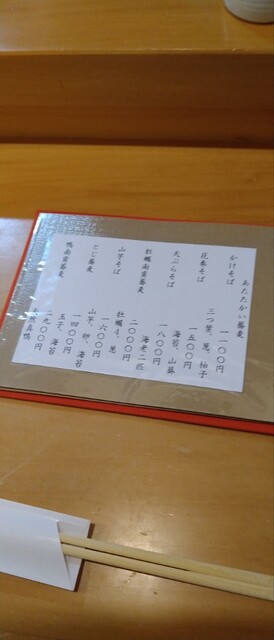 あたたかい蕎麦
かけそば 一一〇〇円
三つ葉、葱、柚子
花巻そば 一五〇〇円
海苔、山葵
天ぷらそば 一八〇〇円
海老二匹
牡蠣南蛮蕎麦 二〇〇〇円
牡蠣4、葱
山芋そば 一六〇〇円
山芋、卵、海苔
とじ蕎麦 一四〇〇円
玉子、海苔
鴨南蛮蕎麦 二九〇〇円
然真鴨